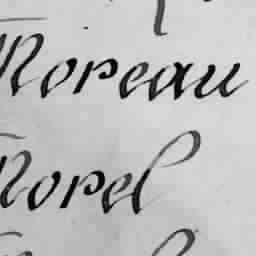 Moreau
Morel